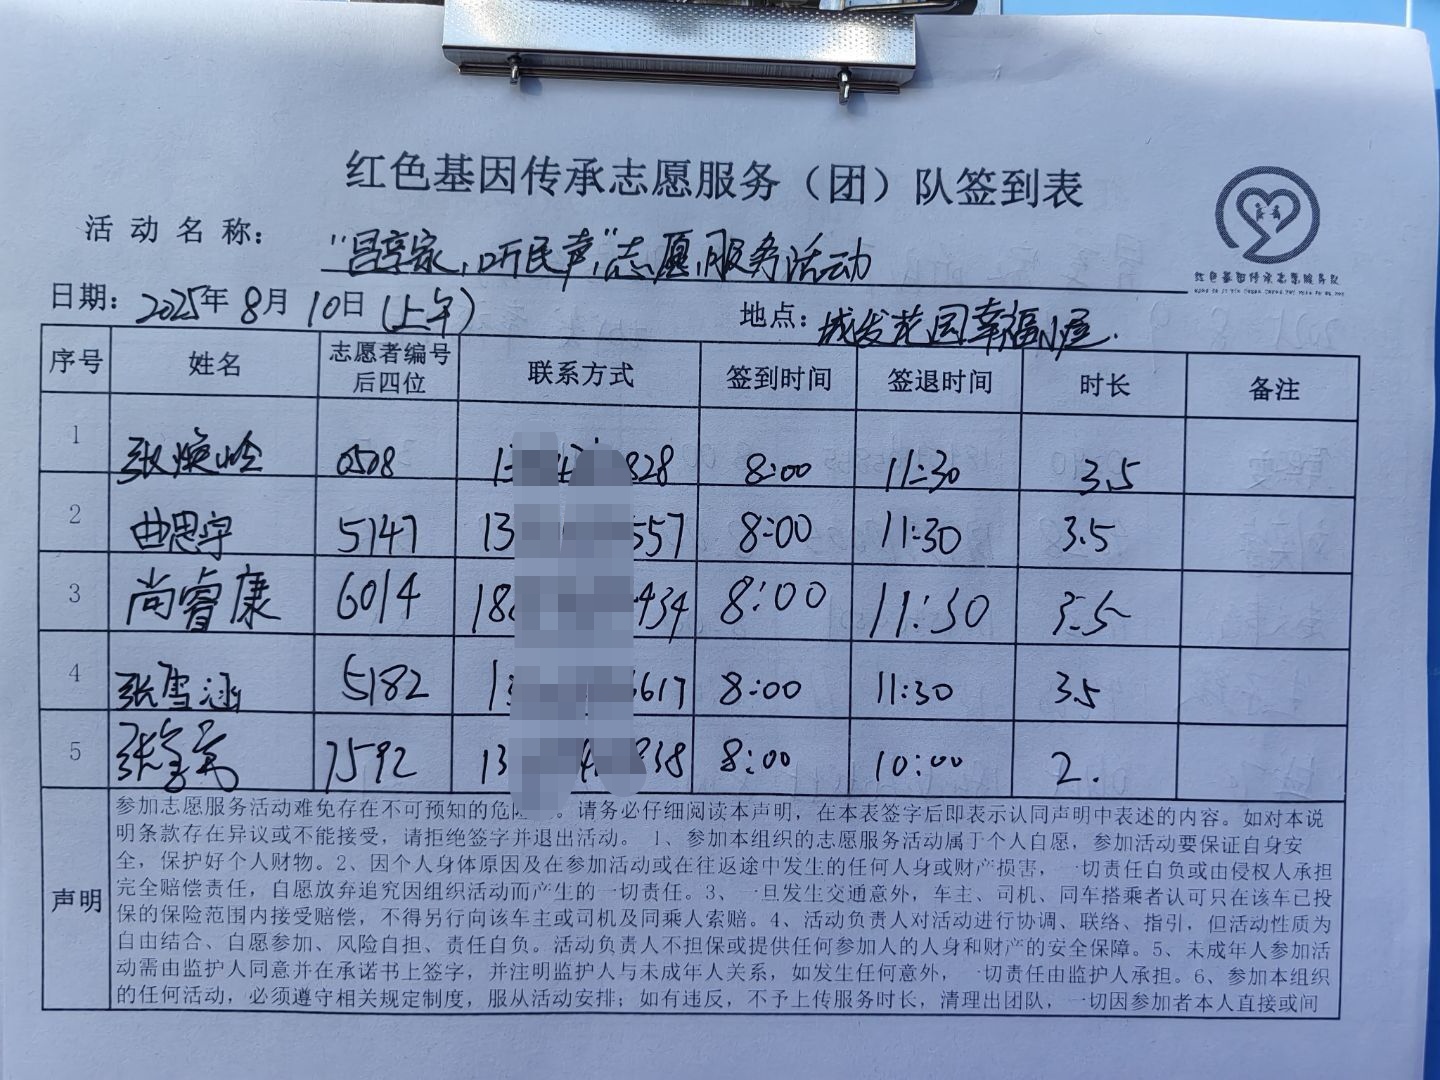 红色基因传承志愿服务（团）队签到表
活动名称：“吕享家，听民声”志愿服务活动
红色基因传承志愿服务队
日期：2025年8月10日(上午) 地点：城发花园幸福小屋.
序号 姓名 志愿者编号后四位 联系方式 签到时间 签退时间 时长 备注
1 张焕岭 0508 828 8:00 11:30 3.5
2 曲思宇 5147 13 557 8:00 11:30 3.5
3 尚睿康 6014 18 434 8:00 11:30 3.5
4 张雪涵 5182 1 617 8:00 11:30 3.5
5 张 7592 13 838 8:00 10:00 2.
声明
参加志愿服务活动难免存在不可预知的危 。请务必仔细阅读本声明，在本表签字后即表示认同声明中表述的内容。如对本说
明条款存在异议或不能接受，请拒绝签字并退出活动。 1、参加本组织的志愿服务活动属于个人自愿，参加活动要保证自身安
全，保护好个人财物。2、因个人身体原因及在参加活动或在往返途中发生的任何人身或财产损害，一切责任自负或由侵权人承担
完全赔偿责任，自愿放弃追究因组织活动而产生的一切责任。3、一旦发生交通意外，车主、司机、同车搭乘者认可只在该车已投
保的保险范围内接受赔偿，不得另行向该车主或司机及同乘人索赔。4、活动负责人对活动进行协调、联络、指引，但活动性质为
自由结合、自愿参加、风险自担、责任自负。活动负责人不担保或提供任何参加人的人身和财产的安全保障。5、未成年人参加活
动需由监护人同意并在承诺书上签字，并注明监护人与未成年人关系，如发生任何意外，一切责任由监护人承担。6、参加本组织
的任何活动，必须遵守相关规定制度，服从活动安排；如有违反，不予上传服务时长，清理出团队，一切因参加者本人直接或间